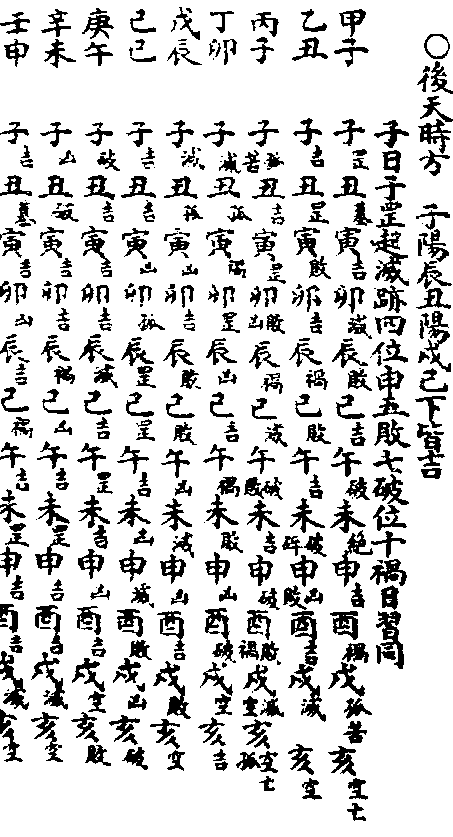 ○後天時方 子陽辰丑陽戌己下皆吉
子日子罡起滅跡四位申五敗七破位十禍日習同
甲子 子罡丑墓寅吉卯滅辰敗己吉午破未絶申吉酉禍戌孤苦亥空亡
乙丑 子吉丑罡寅敗卯吉辰禍己敗午吉未破碎申凶敗酉吉戌滅亥空
丙子 子孤苦丑吉寅罡卯敗凶辰禍己滅午破敗未吉申破酉敗禍戌滅空亥空亡孤
丁卯 子滅丑孤寅禍卯罡辰凶己吉午禍未敗申凶酉破戌空亥吉
戊辰 子滅丑孤寅凶卯吉辰敗己敗午凶未滅申凶酉吉戌敗亥空
己己 子吉丑吉寅凶卯孤辰罡己罡午吉未凶申滅酉敗戌凶亥破
庚午 子破丑吉寅吉卯吉辰滅己吉午罡未吉申凶酉吉戌空亥敗
辛未 子凶丑破寅吉卯吉辰禍己凶午吉未罡申吉酉吉戌滅亥空
壬申 子吉丑墓寅吉卯凶辰吉己禍午吉未罡申吉酉吉戌滅亥空